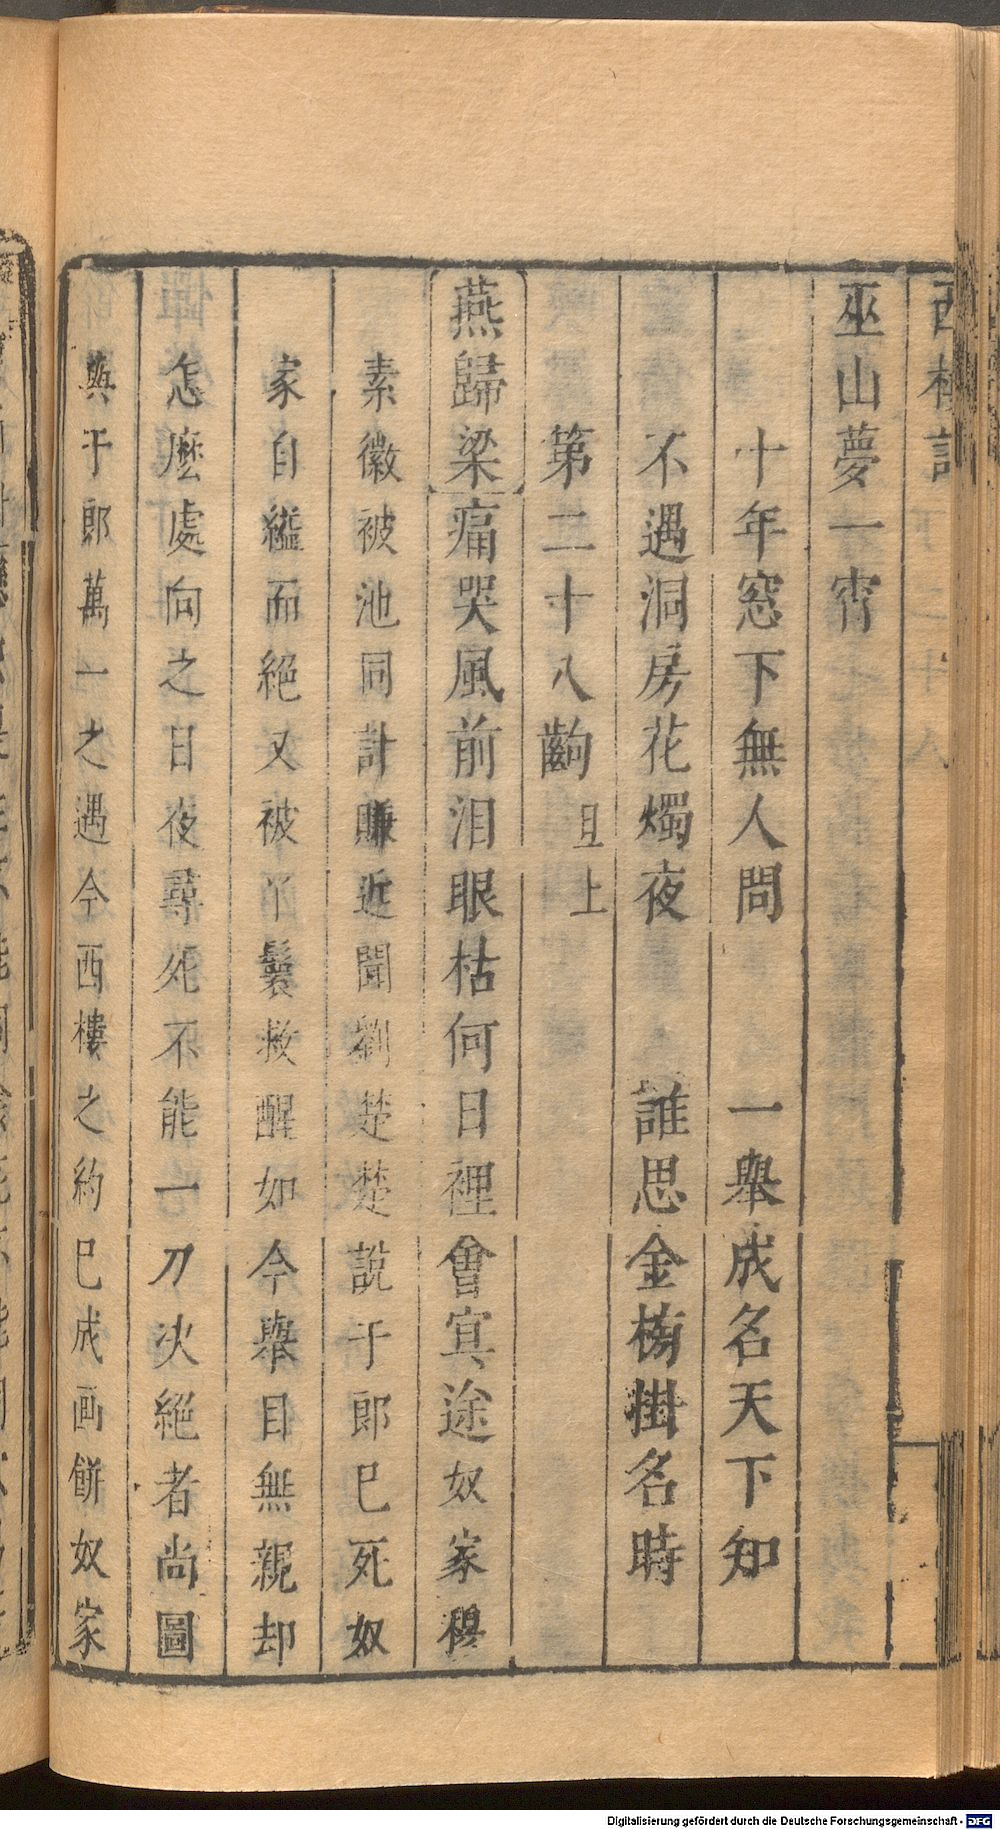 巫山夢一宵
十年窓下無人問　一舉成名天下知
不遇洞房花燭夜　誰思金榜掛名時
第二十八齣 旦上
燕歸梁 痛哭風前泪眼枯何日裡會冥途奴家穆
素徽被池同計賺近聞劉楚楚說于郎已死奴
家自縊而絕又被丫鬟救醒如今舉目無親却
怎麼處向之日夜尋死不能一刀决絕者尚圖
與于郎萬一之遇今西樓之約已成画餅奴家
Digitalisierung gefördert durch die Deutsche Forschungsgemeinschaft - DFG